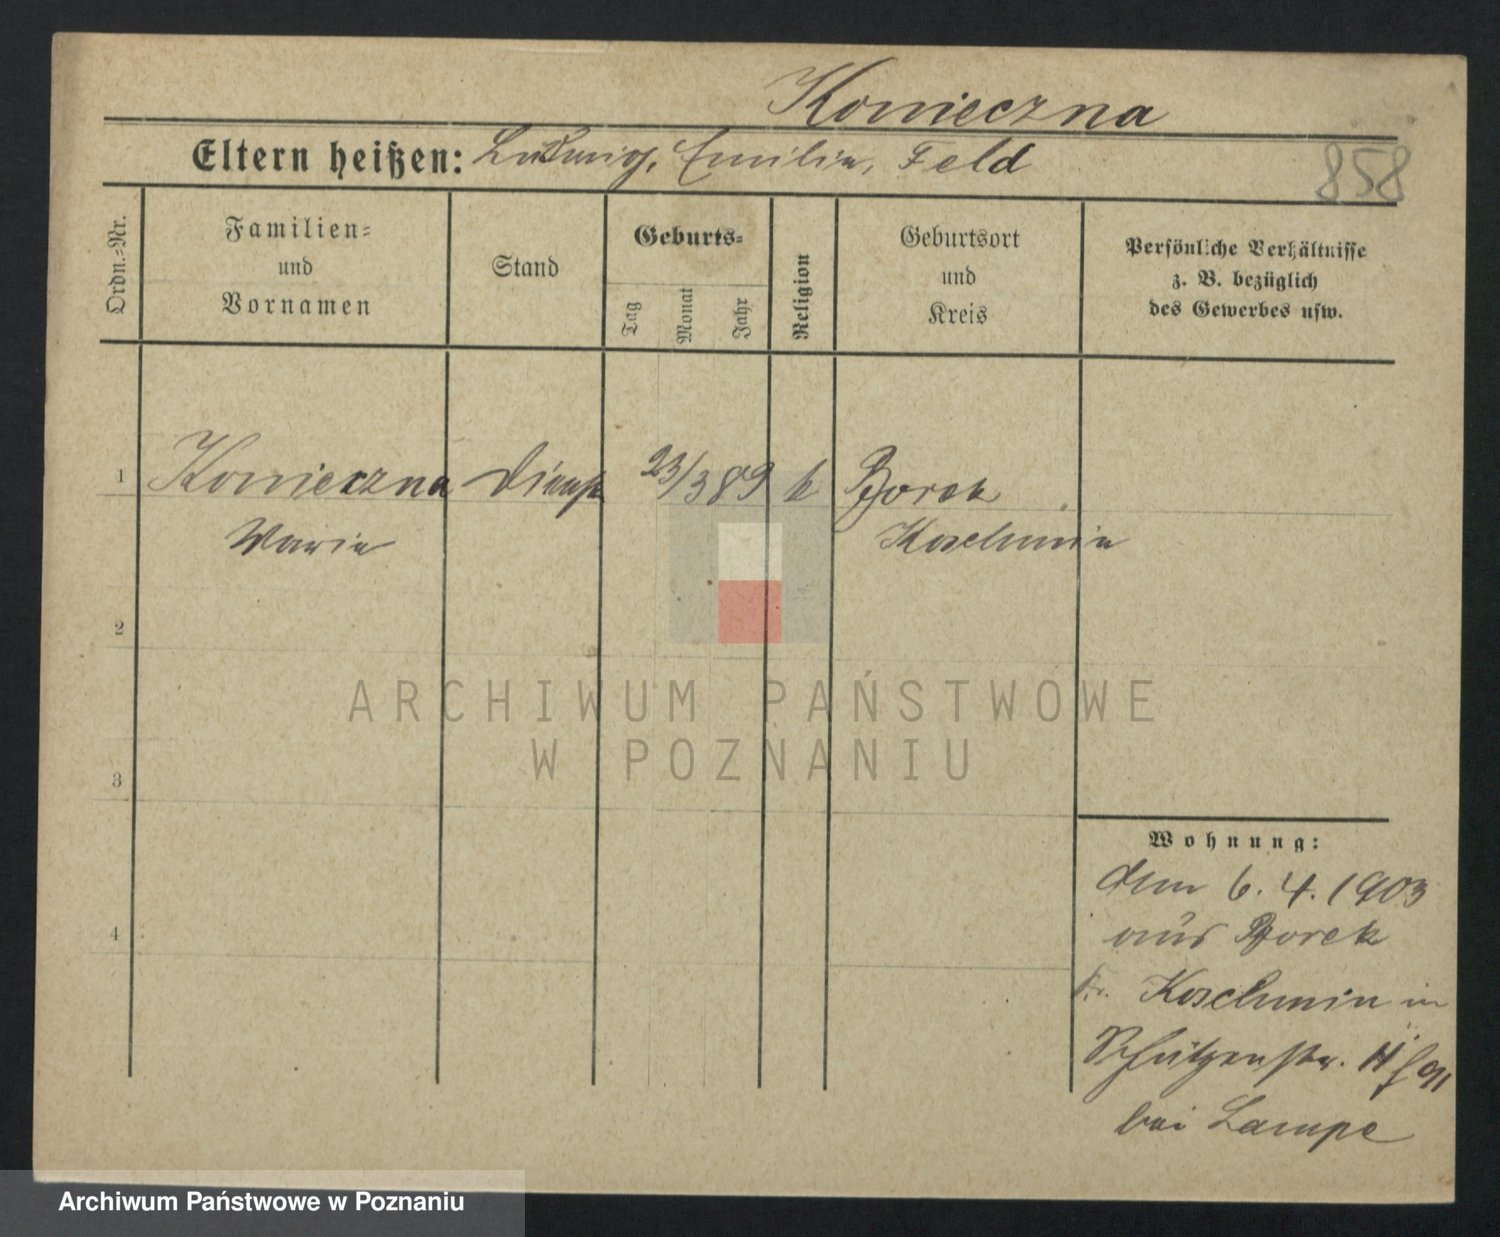 Konieczna
Eltern heißen: Ludwig, Emilie, Feld
858
Ordn.=Nr.
Familien=
und
Vornamen
Stand
Geburts=
Tag
Monat
Jahr
Religion
Geburtsort
und
Kreis
Persönliche Verhältnisse
z. B. bezüglich
des Gewerbes usw.
1 Konieczna Dienst 23/3 89 k Borek
Marie Koschmin
2
3
4
Wohnung:
den 6. 4. 1903
aus Borek
Kr. Koschmin in
Schützenstr.
bei Lampe
ARCHIWUM PAŃSTWOWE
W POZNANIU
Archiwum Państwowe w Poznaniu